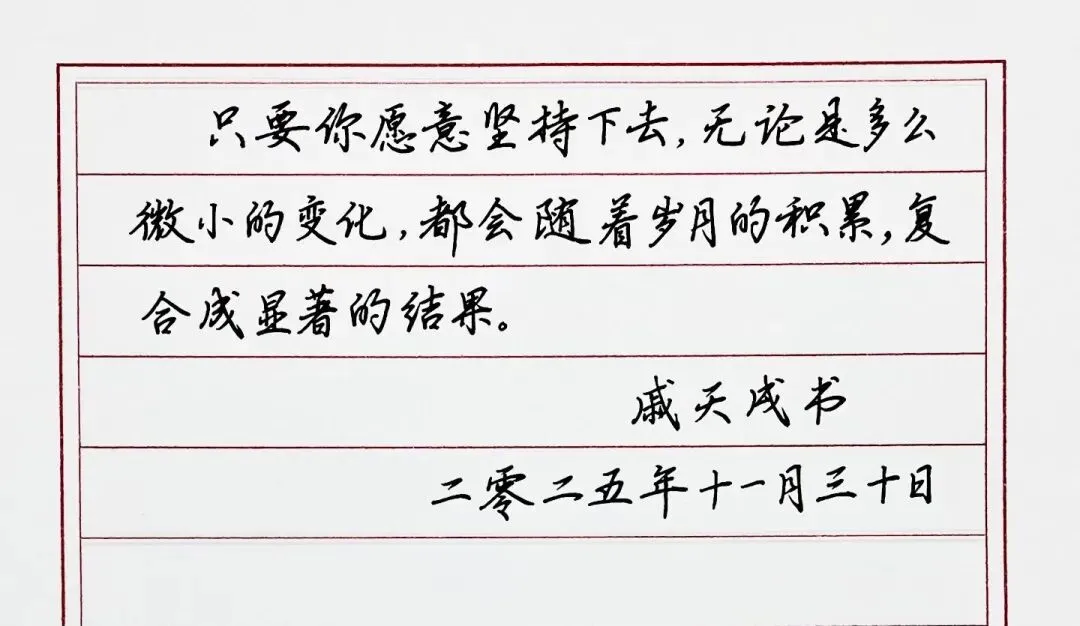 只要你愿意坚持下去,无论是多么
微小的变化,都会随着岁月的积累,复
合成显著的结果。
戚天成书
二零二五年十一月三十日